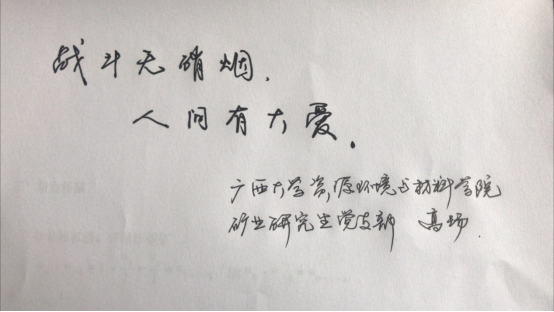 战斗无硝烟，
人间有大爱。
广西大学资源环境与材料学院
矿业研究生党支部 高场